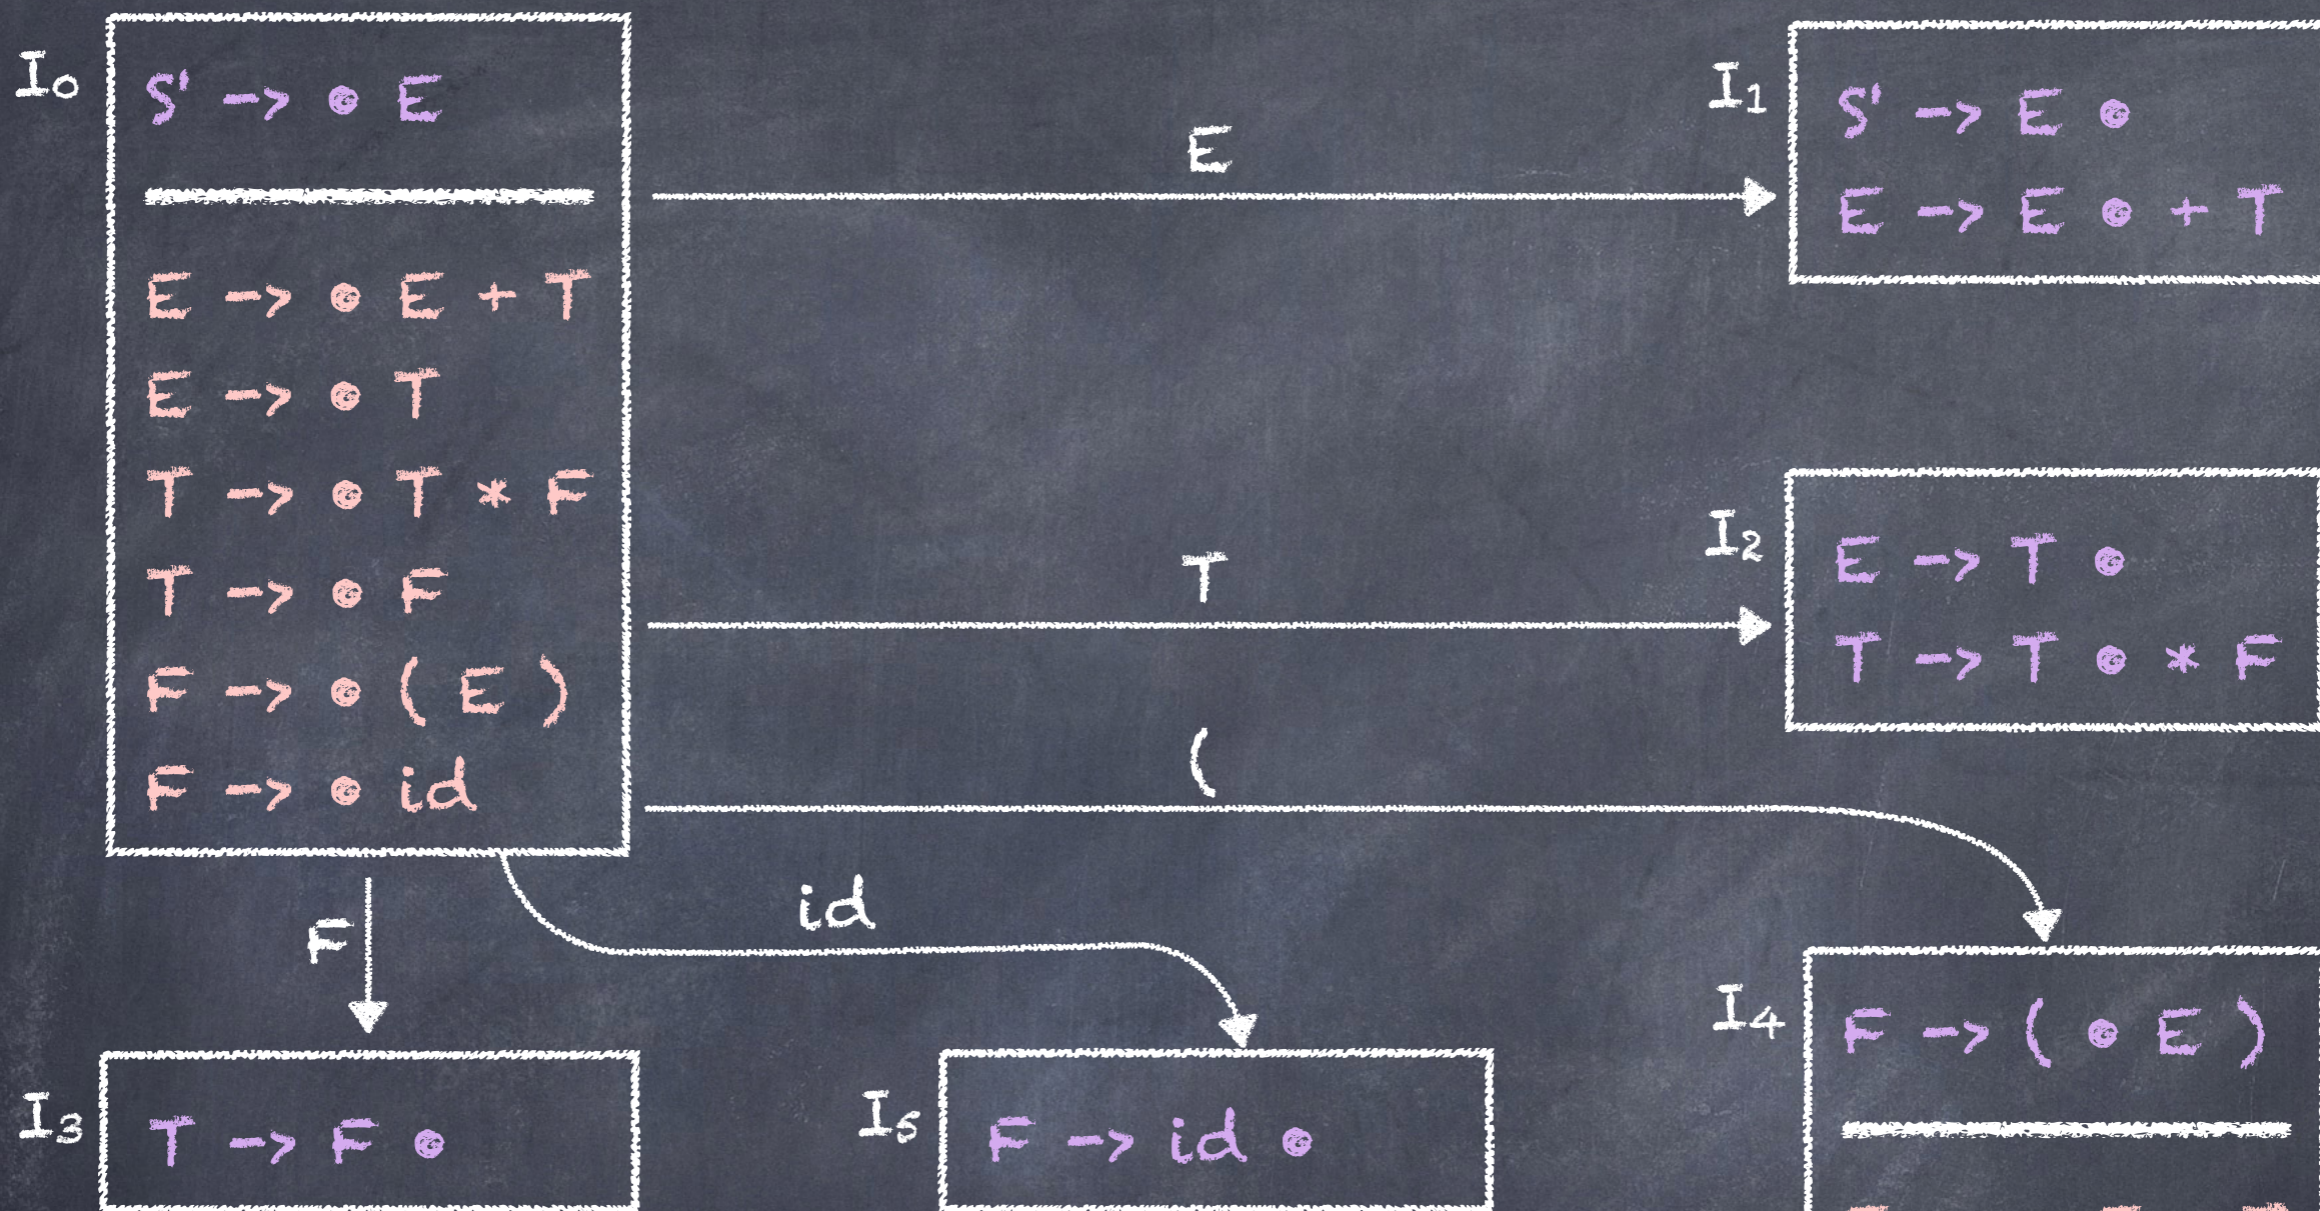 I₀
S' -> ⊙ E
E -> ⊙ E + T
E -> ⊙ T
T -> ⊙ T * F
T -> ⊙ F
F -> ⊙ ( E )
F -> ⊙ id
E
I₁
S' -> E ⊙
E -> E ⊙ + T
T
I₂
E -> T ⊙
T -> T ⊙ * F
(
id
F
I₃
T -> F ⊙
I₅
F -> id ⊙
I₄
F -> ( ⊙ E )